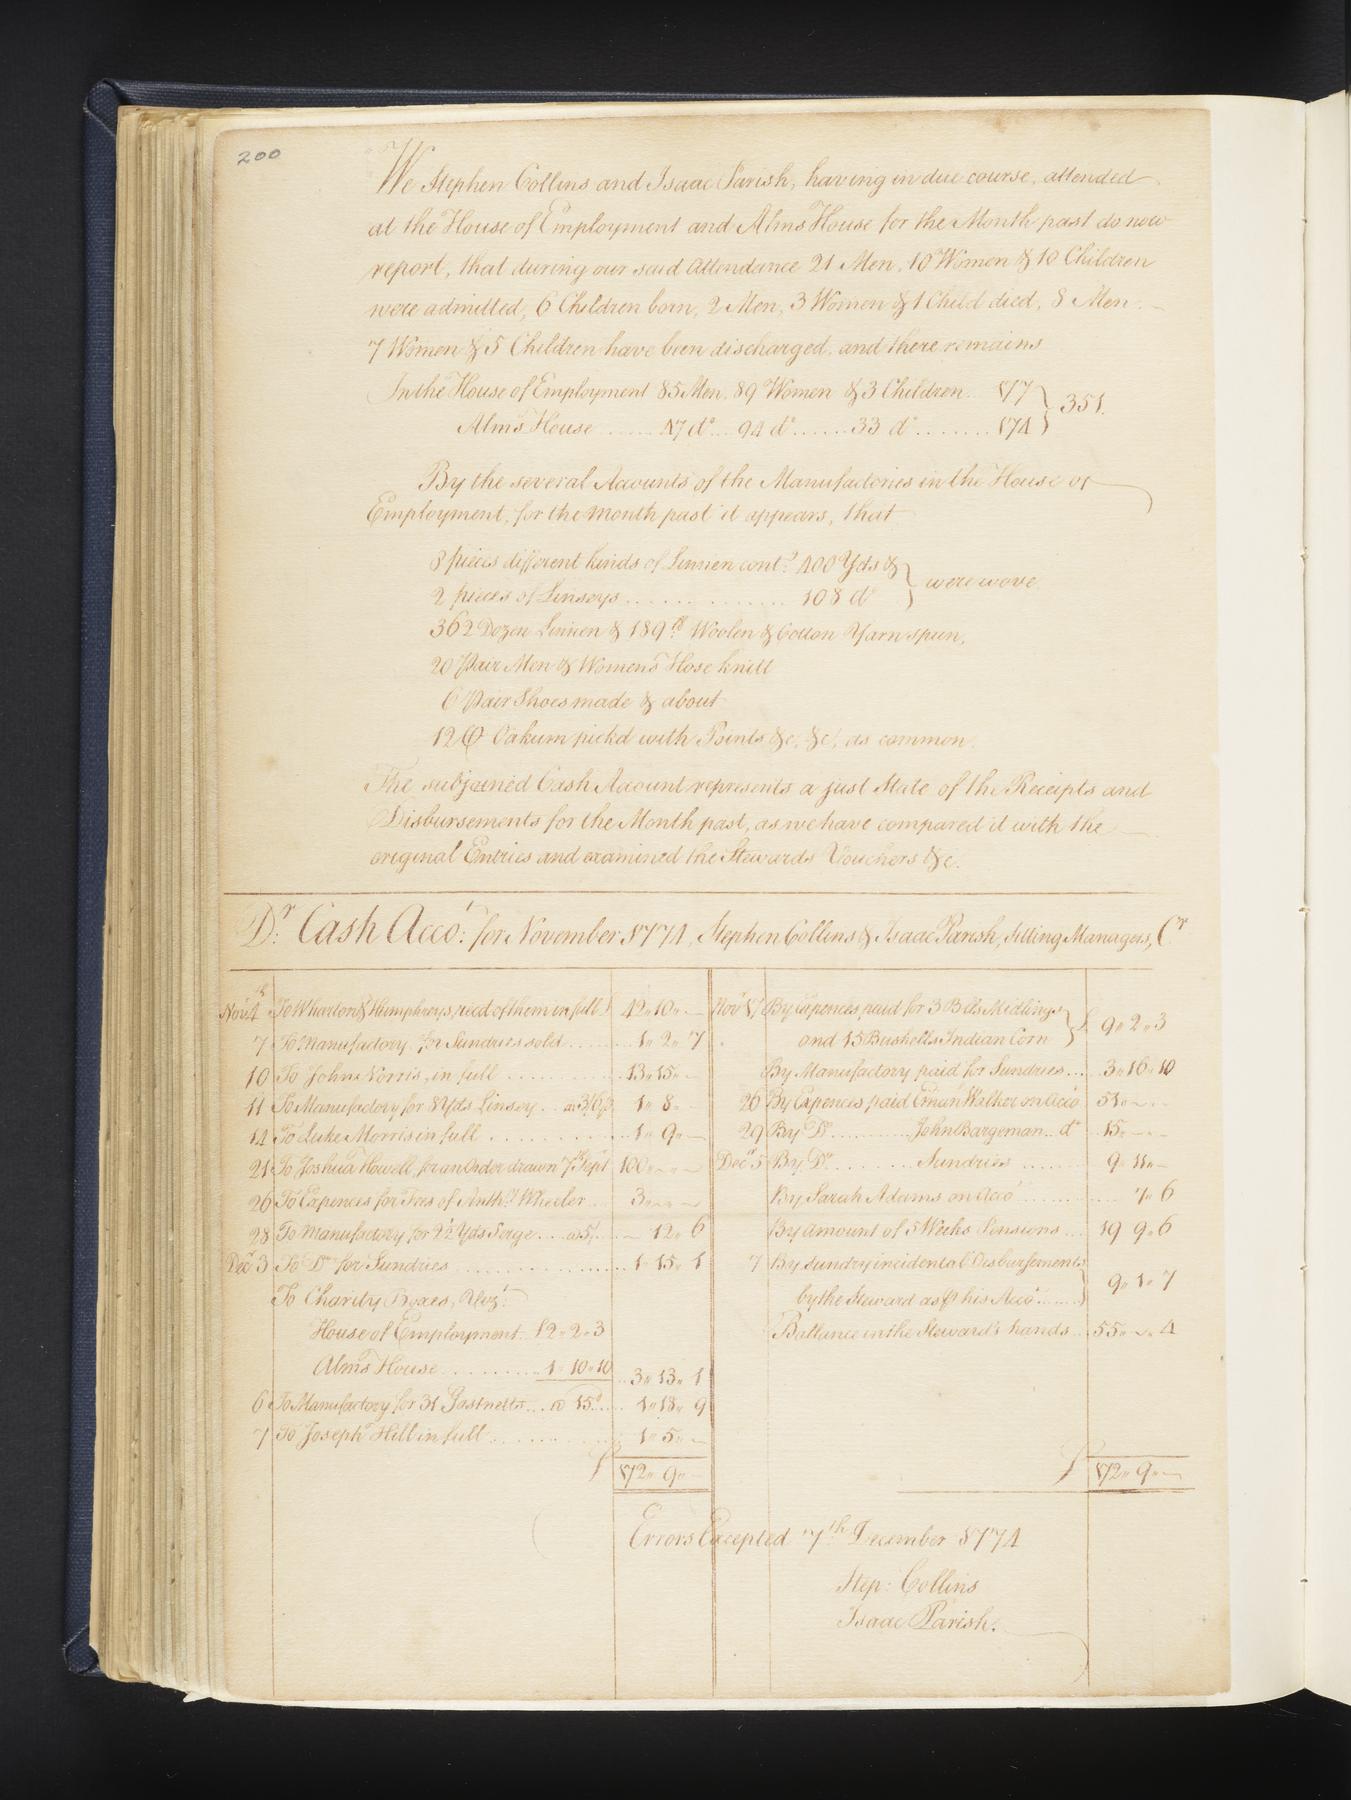 200
We Stephen Collins and Isaac Parish, having in due course, attended
at the House of Employment and Alms House for the Month past do now
report, that during our said Attendance 21 Men, 10 Women & 10 Children
were admitted, 6 Children born, 2 Men, 3 Women & 1 Child died, 8 Men
7 Women & 5 Children have been discharged, and there remains
In the House of Employment 85 Men, 89 Women & 3 Children .. 177 } 351.
Alms House ...... 47 do... 94 do...... 33 do........ 174
By the several Accounts of the Manufactories in the House of
Employment, for the Month past it appears, that
8 pieces different kinds of Linnen cont.g 400 Yds & } were wove.
2 pieces of Linseys .............. 108 do
362 Dozen Linnen & 189 lb Woolen & Cotton Yarn spun,
20 Pair Men & Womens Hose knitt
6 Pair Shoes made & about
12 C Oakum pickd with Points &c, &c, as common.
The subjoined Cash Account represents a just State of the Receipts and
Disbursements for the Month past, as we have compared it with the
original Entries and examined the Stewards Vouchers &c.
Dr: Cash Acco't: for November 1774, Stephen Collins & Isaac Parish, sitting Managers, Cr
Nov 4th To Wharton & Humphreys, recd of them in full 42" 10" —
7 To Manufactory, for Sundries sold ........ 1" 2" 7
10 To John Norris, in full ............ 13" 15" —
11 To Manufactory for 8 Yds Linsey .. a 3/6 p 1" 8" -
14 To Luke Morris in full ............ 1" 9" —
21 To Joshua Howell, for an Order drawn 7th Sept 100" — " —
26 To Expences for Fees of Anth.y Wheeler ... 3" — " —
28 To Manufactory for 2½ Yds Serge .... a 5/ .... — 12" 6
Dec 3 To Do for Sundries ................. 1" 15" 1
To Charity Boxes, Viz.t
House of Employment £2" 2" 3
Alms House ......... 1" 10" 10 .. 3" 13" 1
6 To Manufactory for 31 ... a 15d .... 1" 18" 9
7 To Joseph Hill in full .............. 1" 5" —
£ 172" 9" —
Nov 17 By Expences paid for 3 Bbls Midlings } £ 9" 2" 3
and 15 Bushells Indian Corn
By Manufactory paid for Sundries ... 3" 16" 10
26 By Expences paid Eman Walker on Acco 51" — " -
29 By Do .......... John Bargeman .. do 15" — " —
Dec 5 By Do ......... Sundries ........ 9" 11" —
By Sarah Adams on Acco ............ 7" 6
By Amount of 5 Weeks Pensions ... 19 9" 6
7 By sundry incidental Disbursements
by the Steward as p his Acco ...... } 9" 1" 7
Ballance in the Steward's hands .. 55" — " 4
£ 172" 9" —
Errors Excepted 7th December 1774
Step: Collins
Isaac Parish.